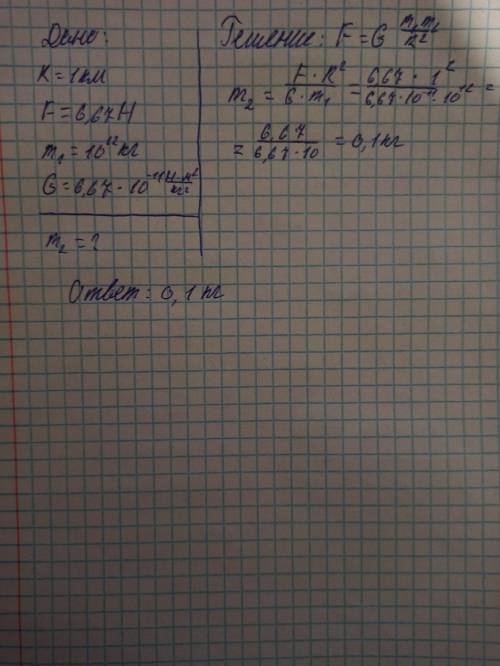 Дано:
R = 1 км
F = 6,67 Н
m₁ = 10¹² кг
G = 6,67 · 10⁻¹¹ Н·м²/кг²
m₂ = ?
Решение: F = G m₁m₂/R²
m₂ = F · R²/G · m₁ = 6,67 · 1²/6,67 · 10⁻¹¹ · 10¹² =
= 6,67/6,67 · 10 = 0,1 кг
Ответ: 0,1 кг